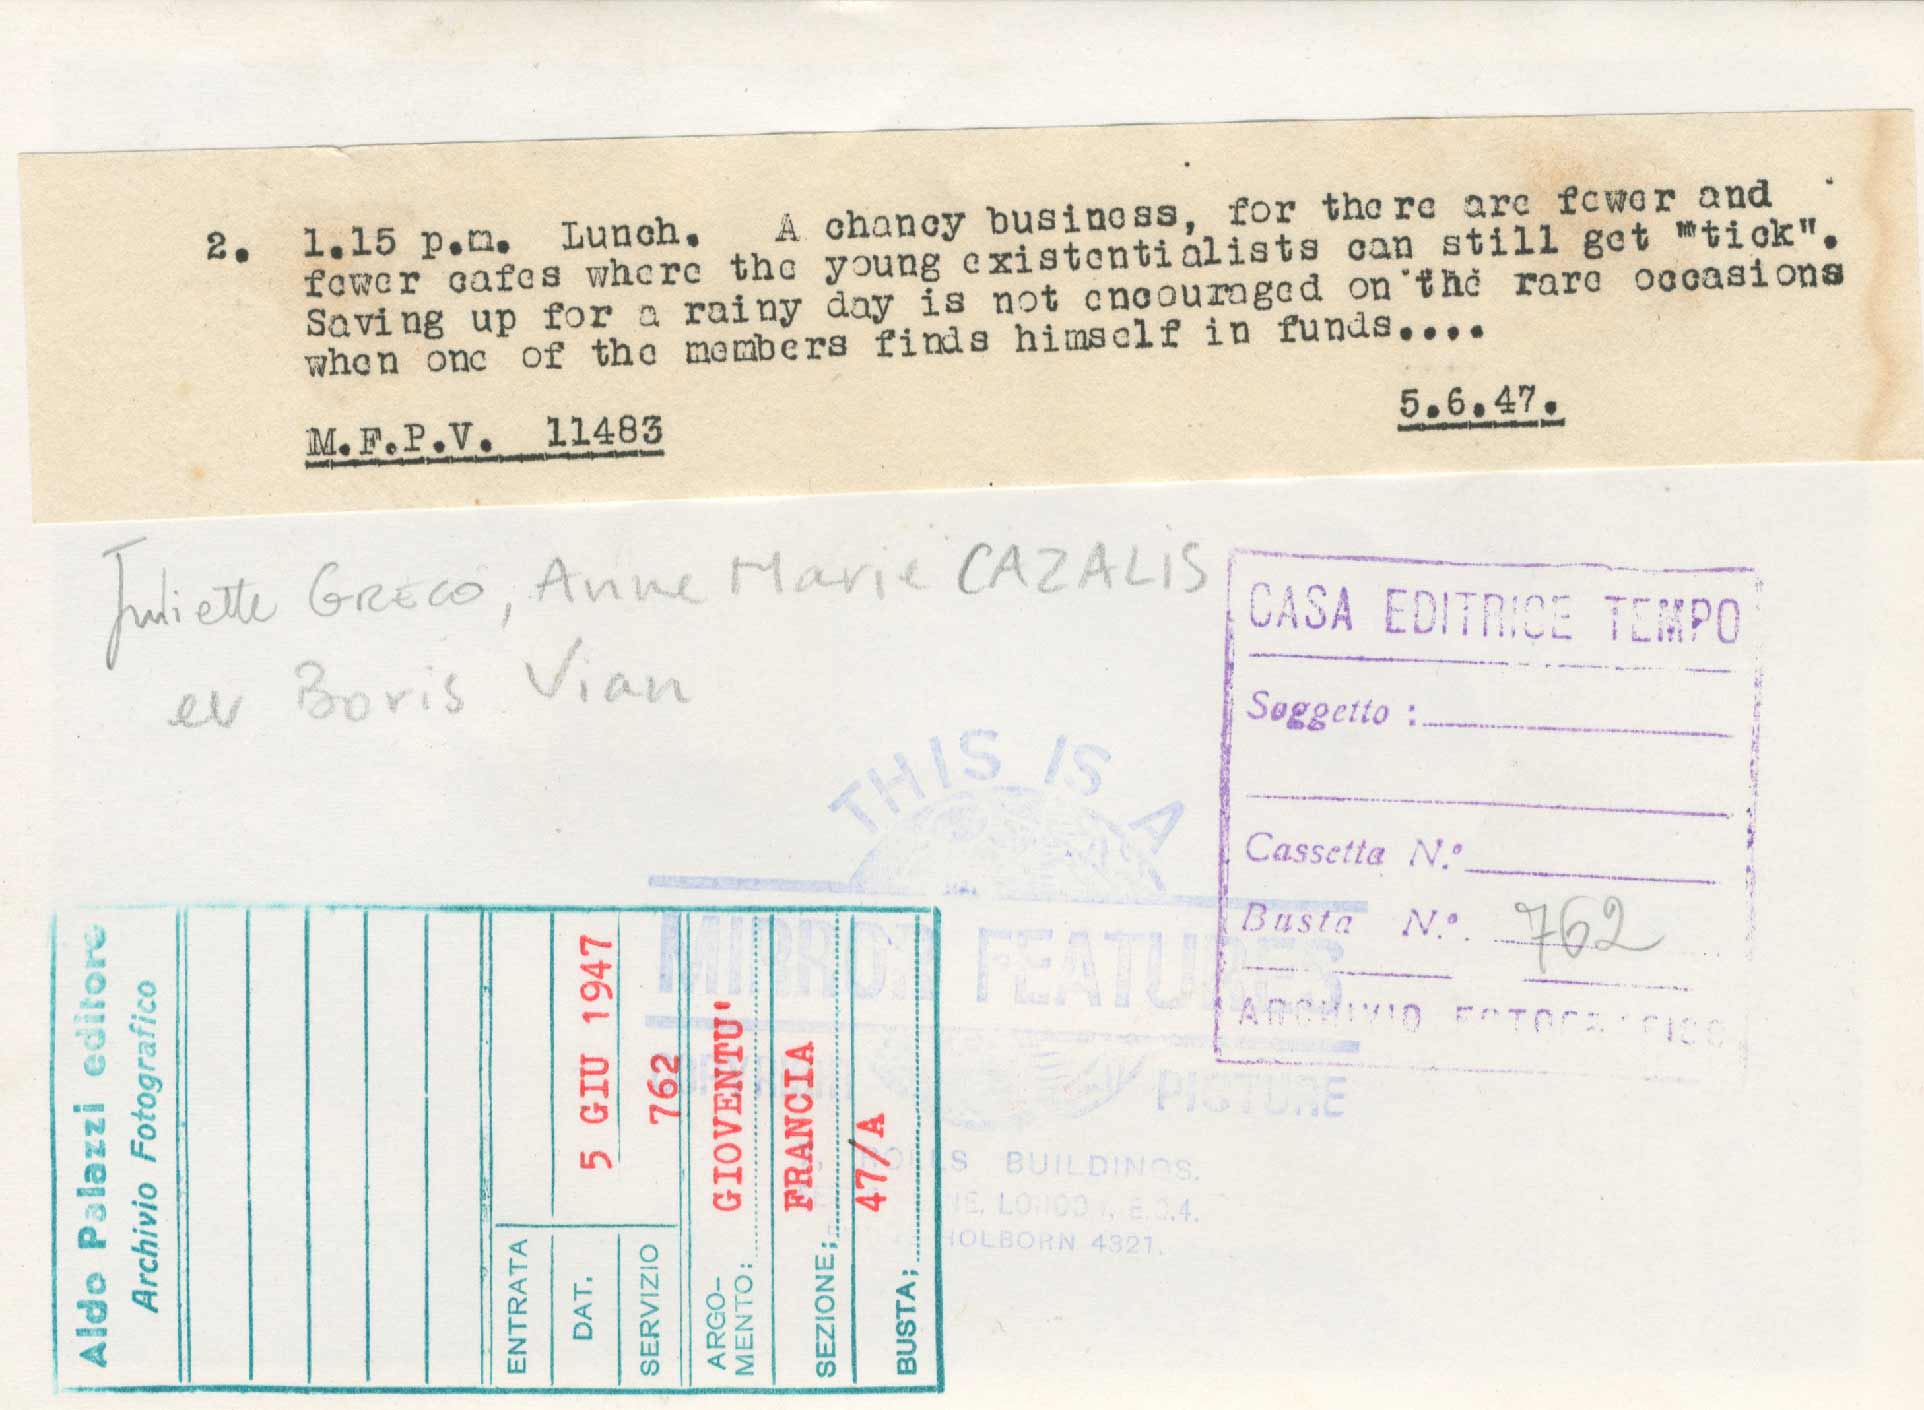 2. 1.15 p.m. Lunch. A chancy business, for there are fewer and
fewer cafes where the young existentialists can still get "tick".
Saving up for a rainy day is not encouraged on the rare occasions
when one of the members finds himself in funds....
M.F.P.V. 11483
5.6.47.
Juliette GRECO, Anne Marie CAZALIS
et Boris Vian
CASA EDITRICE TEMPO
Soggetto :
Cassetta N.º
Busta N.º. 762
ARCHIVIO FOTOGRAFICO
THIS IS A
MIRROR FEATURES
PICTURE
BUILDINGS.
LONDON, E.C.4.
HOLBORN 4321.
Aldo Palazzi editore
Archivio Fotografico
ENTRATA
DAT. 5 GIU 1947
SERVIZIO 762
ARGO-
MENTO: GIOVENTU'
SEZIONE; FRANCIA
BUSTA; 47/A